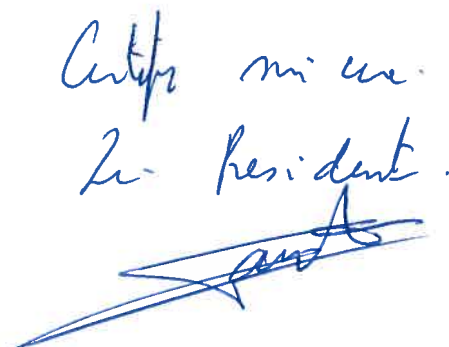 Certifié sincère.
Le Président.